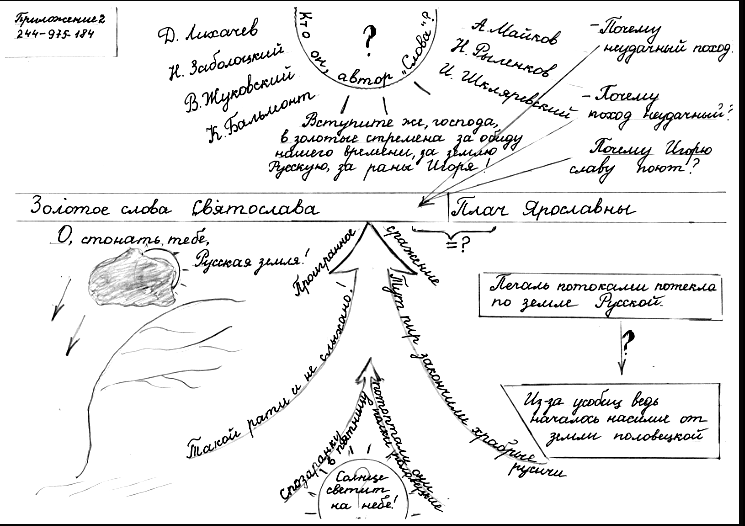 Приложение 2
244-975-184
Д. Лихачев
Н. Заболоцкий
В. Жуковский
К. Бальмонт
Кто он, автор "Слова"?
?
А. Майков
Н. Рыленков
И. Шкляревский
- Почему
неудачный поход.
- Почему
поход неудачный?
Почему Игорю
славу поют?
Вступите же, господа,
в золотые стремена за обиду
нашего времени, за землю
Русскую, за раны Игоря!
Золотое слова Святослава
Плач Ярославны
= ?
О, стонать тебе,
Русская земля!
Проигранное
сражение
Такой рати и не слыхано!
Тут пир закончили храбрые
русичи
Печаль потоками потекла
по земле Русской.
?
Из-за усобиц ведь
началось насилие от
земли половецкой
спозаранку
в пятницу
потоптали они
полки половецкие
Солнце
светит
на небе!